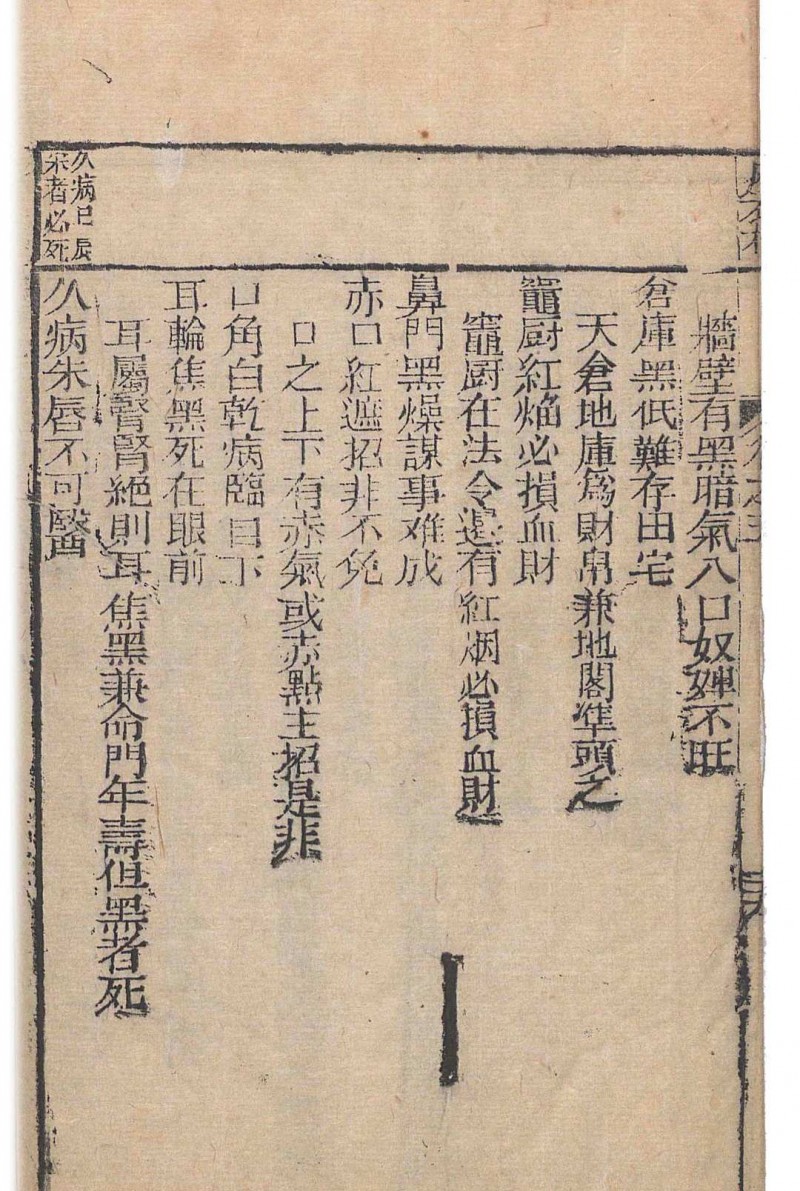 牆壁有黑暗氣人口奴婢不旺
倉庫黑低難存田宅
天倉地庫爲財帛兼地閣準頭之
竈厨紅焰必損血財
竈厨在法令邊有紅烟必損血財
鼻門黑燥謀事难成
赤口紅遮招非不免
口之上下有赤氣或赤點主招是非
口角白乾病臨目下
耳輪焦黑死在眼前
耳屬腎腎絕則耳焦黑兼命門年壽但黑者死
久病朱唇不可醫
久病巳辰
朱者必死